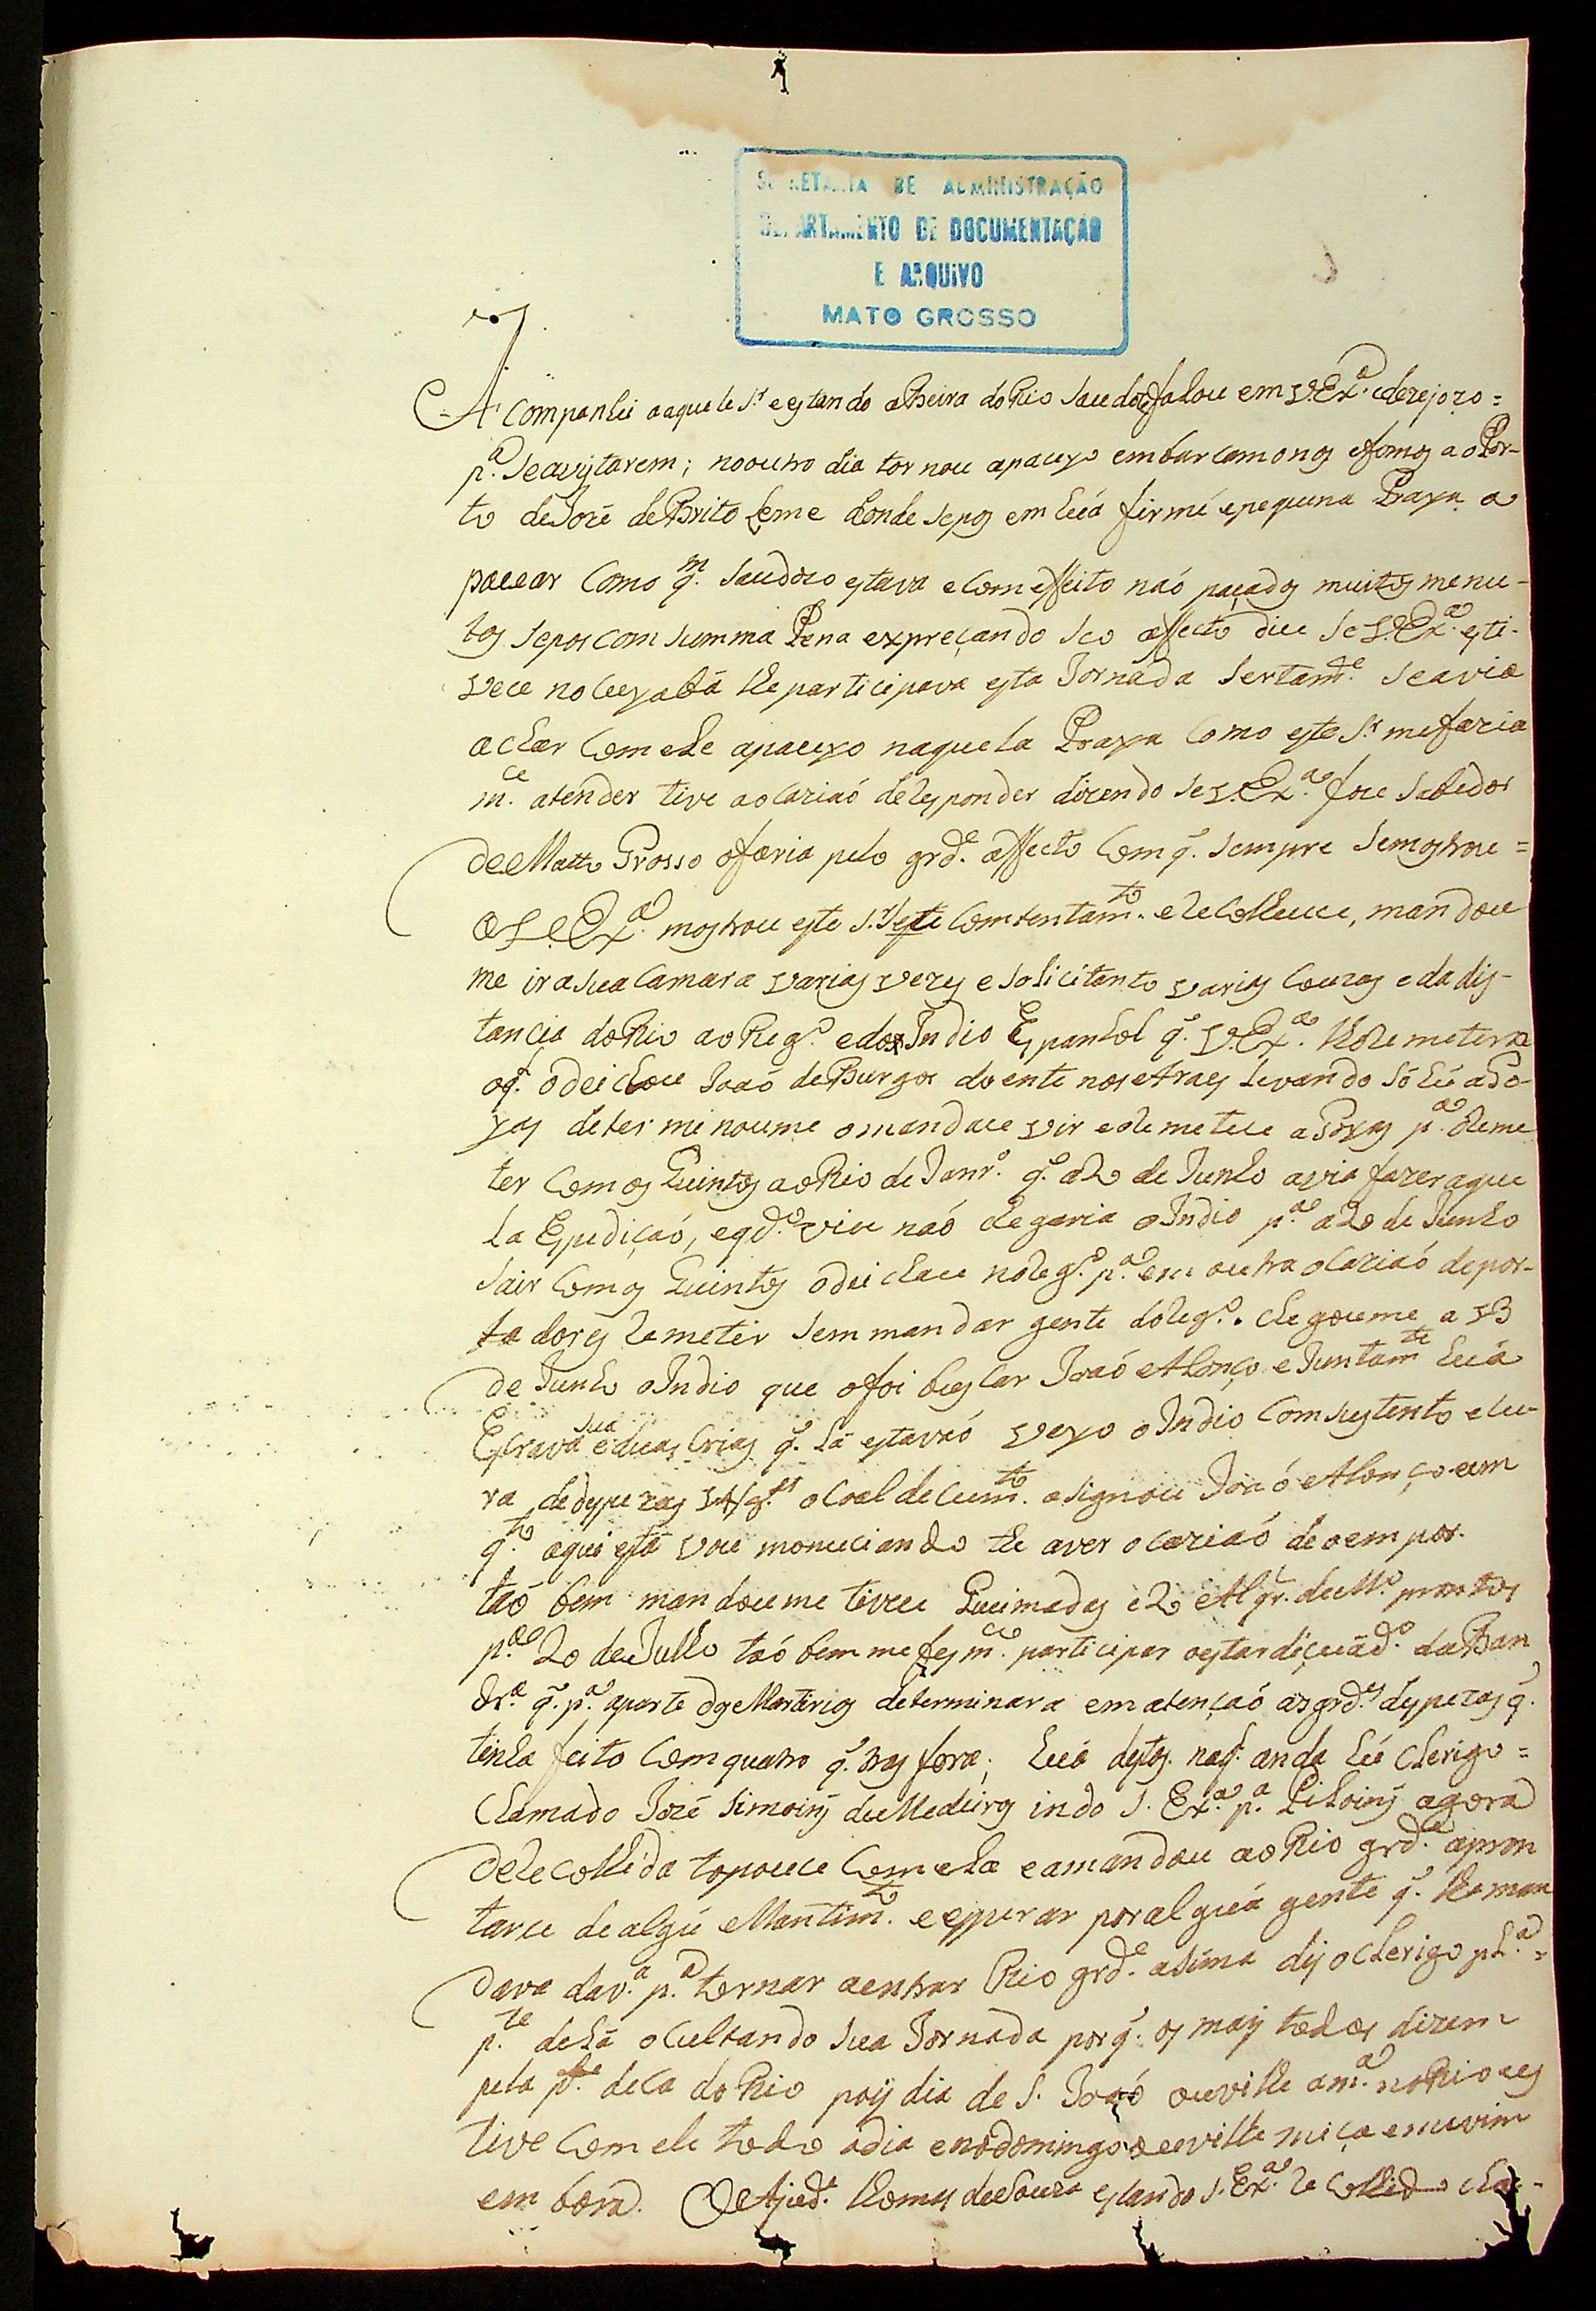 SECRETARIA DE ADMINISTRAÇÃO
DEPARTAMENTO DE DOCUMENTAÇÃO
E ARQUIVO
MATO GROSSO
Acompanhei a aquele Sr. e estando a Beira do Rio Saudozo falou em V. Exa. e dezejozo =
pa. se avistarem; no outro dia tornou a paceyo embarcamonos e fomos ao Por-
to de José de Brito Leme donde se pos em huá firmi e pequena Praya a
pacear como qm. saudozo estava e com effeito naó paçados muitos menu-
tos se pos com summa Pena expreçando seo affecto dice se V. Exa. esti-
vece no Cuyabá lhe participava esta Jornada sertamte. se avia
achar com ele a paceyo naquela Praya como este Sr. me fazia
mce. atender tive ocaziaó de responder dizendo se V. Exa. foce sabedor
de Matto Grosso o faria pelo grde. affecto com q. sempre se mostrou =
a S. Exa. mostrou este Sr. este contentamto. e recolheuce, mandou
me ir a sua camara varias vezes e solicitanto varias couzas e da dis-
tancia do Rio ao Rego. e do Indio Espanhol q. V. Exa. lho remetera
o q. o deichou Joaó de Burgos doente nos Araes levando só hú a Go-
yas determinoume o mandace vir e o remetece a Goyas pa. o reme
ter com os Quintos ao Rio de Janro. q. a 20 de Junho avia fazer aque
la Espediçaó, e qdo. vice naó chegaria o Indio pa. a 20 de Junho
sair com os Quintos o deichace no rego. pa. em outra ocaziaó de por-
tadores remetir sem mandar gente do rego. chegoume a 13
de Junho o Indio que o foi buscar Joaó Alonço e Juntamte. huá
Escrava sua e duas crias q. lá estavaó veyo o Indio com sustento e cu-
ra de despezas o coal decumto. asignou Joaó Alonço em
qto. aqui está vou monuciando the aver ocaziaó de o em por.
taó bem mandoume tivece Queimadas e 2 Alqr. de Mo. prontos
pa. 20 de Julho taó bem me fes mce. participar o estar diçuádo. da Ban
dra. q. pa. a parte dos Martirios determinara em atençaó as grdes. despezas q.
tinha feito com quatro q. tras fora; huá destas. na q. anda hú Clerigo =
chamado José Simoins de Medeiros indo S. Exa. pa. Piloins agora
de recolhida topouce com ela e a mandou ao Rio grde. apron
tarce de algú Mantimto. e esperar por alguá gente q. lhe man
dava da va. pa. tornar a entrar Rio grde. asima dis o Clerigo pla.
pte. de lá ocultando sua Jornada porq. os mais todos dizem
pela pte. de ca do Rio pois dia de S. Joaó ouvilhe a ma. no Rio es
tive com ele todo o dia e no domingo ouvilhe miça e me vim
embora. O Ajude. Thomas de Souza estando S. Exa. recolhido cha-